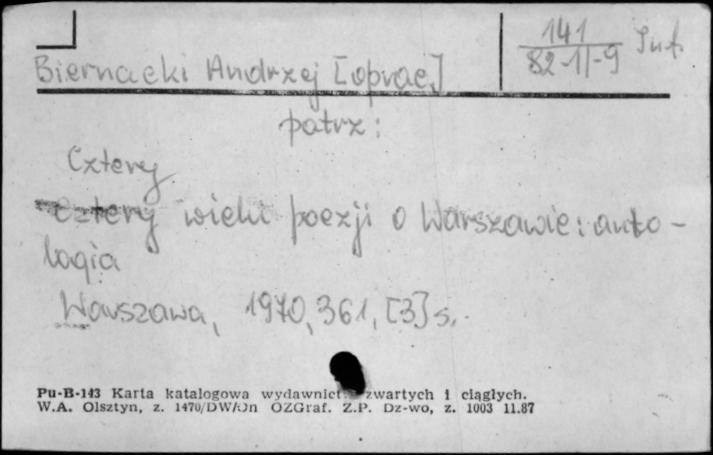 141
82-1/-9 Inf.
Biernacki Andrzej [oprac.]
patrz:
Cztery
Cztery wieki poezji o Warszawie: anto-
logia
Warszawa, 1970, 361, [3] s.
Pu-B-143 Karta katalogowa wydawnictw zwartych i ciągłych.
W.A. Olsztyn, z. 1470/DW/On OZGraf. Z.P. Dz-wo, z. 1003 11.87